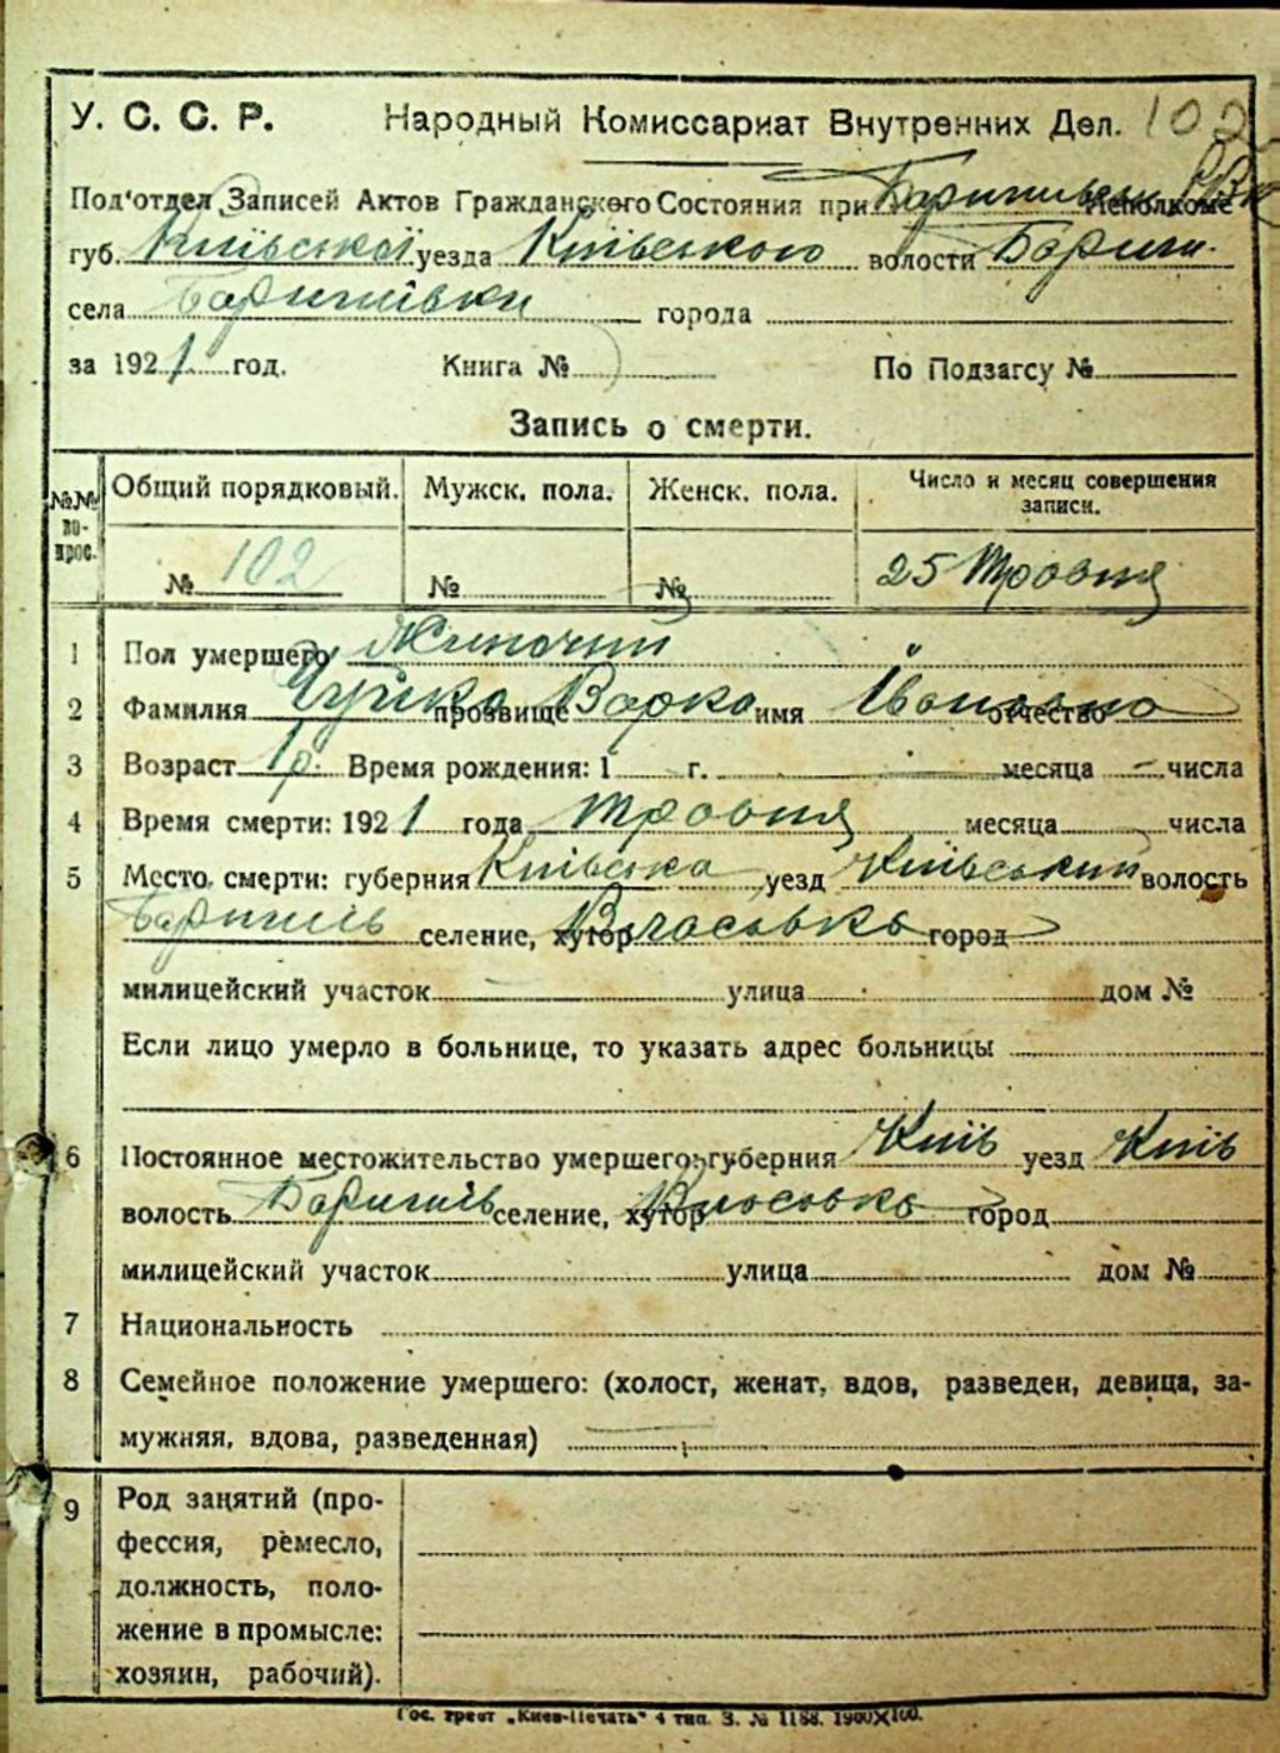 У. С. С. Р. Народный Комиссариат Внутренних Дел. 102
Под'отдел Записей Актов Гражданского Состояния при Исполкоме
губ. Київської уезда Київського волости Бариш.
села Баришівки города
за 1921 год. Книга № По Подзагсу №
Запись о смерти.
№№ во-прос. Общий порядковый. Мужск. пола. Женск. пола. Число и месяц совершения записи.
№ 102 № № 25 Травня
1 Пол умершего Жиночий
2 Фамилия прозвище Варка имя Івановна отчество
3 Возраст 1 р. Время рождения: 1 г. месяца — числа
4 Время смерти: 1921 года травня месяца числа
5 Место смерти: губерния Київська уезд Київський волость
Баришів селение, хутор Власовка город
милицейский участок улица дом №
Если лицо умерло в больнице, то указать адрес больницы
6 Постоянное местожительство умершего: губерния Київ уезд Київ
волость Баришів селение, хутор Власовка город
милицейский участок улица дом №
7 Национальность
8 Семейное положение умершего: (холост, женат, вдов, разведен, девица, за-
мужняя, вдова, разведенная)
9 Род занятий (про-
фессия, ремесло,
должность, поло-
жение в промысле:
хозяин, рабочий).
Гос. трест „Киев-Печать“ 4 тип. З. № 1188. 1900Х100.